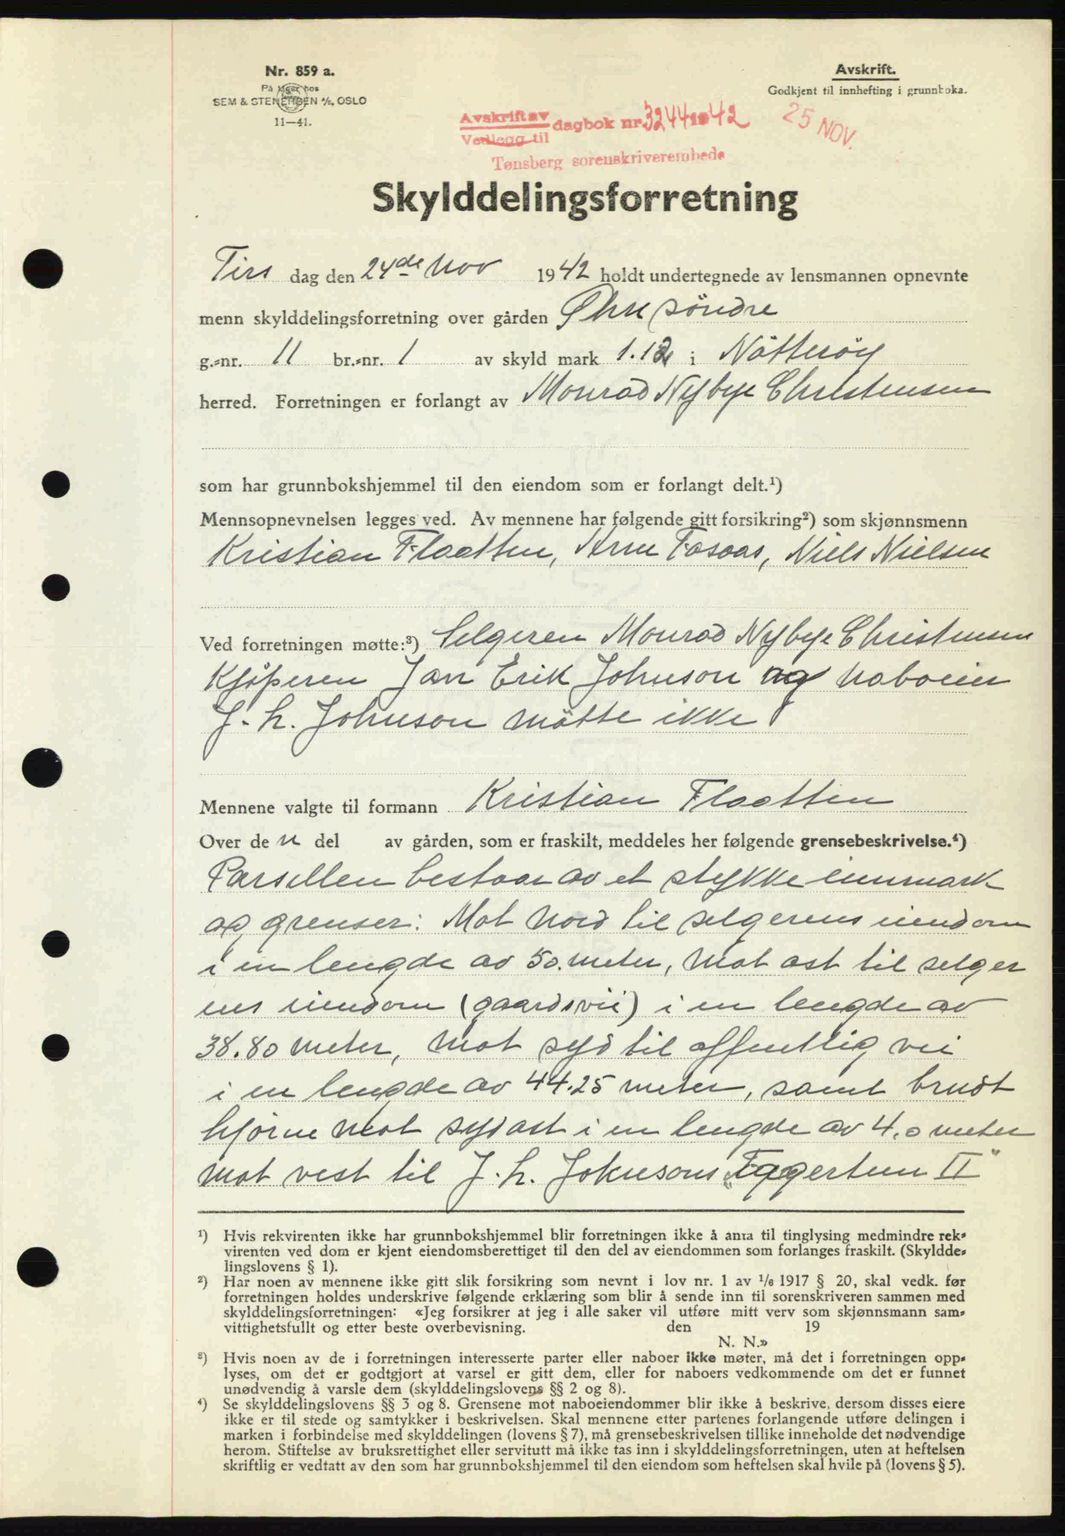 Nr. 859 a.
På lager hos
SEM & STENERSEN A/S, OSLO
11—41.
Avskrift.
Godkjent til innhefting i grunnboka.
Avskrift av
Vedlegg til
dagbok nr. 3244 1942
25 NOV.
Tønsberg sorenskriverembede
Skylddelingsforretning
Tirs dag den 24de Nov 1942 holdt undertegnede av lensmannen opnevnte
menn skylddelingsforretning over gården Øhre søndre
g.-nr. 11 br.-nr. 1 av skyld mark 1.12 i Nøtterøy
herred. Forretningen er forlangt av Monrad Nybye Christensen
som har grunnbokshjemmel til den eiendom som er forlangt delt.¹)
Mennsopnevnelsen legges ved. Av mennene har følgende gitt forsikring²) som skjønnsmenn
Kristian Flaatten, Arne Fosaas, Niels Nielsen
Ved forretningen møtte:³) Selgeren Monrad Nybye Christensen
Kjøperen Jan Erik Johnson og naboeier
J. H. Johnson møtte ikke
Mennene valgte til formann Kristian Flaatten
Over den del av gården, som er fraskilt, meddeles her følgende grensebeskrivelse.⁴)
Parsellen bestaar av et stykke innmark
og grenser: Mot nord til selgerens eiendom
i en lengde av 50. meter, mot øst til selger
ens eiendom (gaardsvei) i en lengde av
38.80 meter, mot syd til offentlig vei
i en lengde av 44.25 meter, samt brudt
hjørne mot sydøst i en lengde av 4.0 meter
mot vest til J. H. Johnsons „Fagertun II"
¹) Hvis rekvirenten ikke har grunnbokshjemmel blir forretningen ikke å anta til tinglysing medmindre rek-
virenten ved dom er kjent eiendomsberettiget til den del av eiendommen som forlanges fraskilt. (Skyldde-
lingslovens § 1).
²) Har noen av mennene ikke gitt slik forsikring som nevnt i lov nr. 1 av ¹/₆ 1917 § 20, skal vedk. før
forretningen holdes underskrive følgende erklæring som blir å sende inn til sorenskriveren sammen med
skylddelingsforretningen: «Jeg forsikrer at jeg i alle saker vil utføre mitt verv som skjønnsmann sam-
vittighetsfullt og etter beste overbevisning. den 19
N. N.»
³) Hvis noen av de i forretningen interesserte parter eller naboer ikke møter, må det i forretningen opp-
lyses, om det er godtgjort at varsel er gitt dem, eller for naboers vedkommende om det er funnet
unødvendig å varsle dem (skylddelingslovens §§ 2 og 8).
⁴) Se skylddelingslovens §§ 3 og 8. Grensene mot naboeiendommer blir ikke å beskrive, dersom disses eiere
ikke er til stede og samtykker i beskrivelsen. Skal mennene etter partenes forlangende utføre delingen i
marken i forbindelse med skylddelingen (lovens § 7), må grensebeskrivelsen tillike inneholde det nødvendige
herom. Stiftelse av bruksrettighet eller servitutt må ikke tas inn i skylddelingsforretningen, uten at heftelsen
skriftlig er vedtatt av den som har grunnbokshjemmel til den eiendom som heftelsen skal hvile på (lovens § 5).